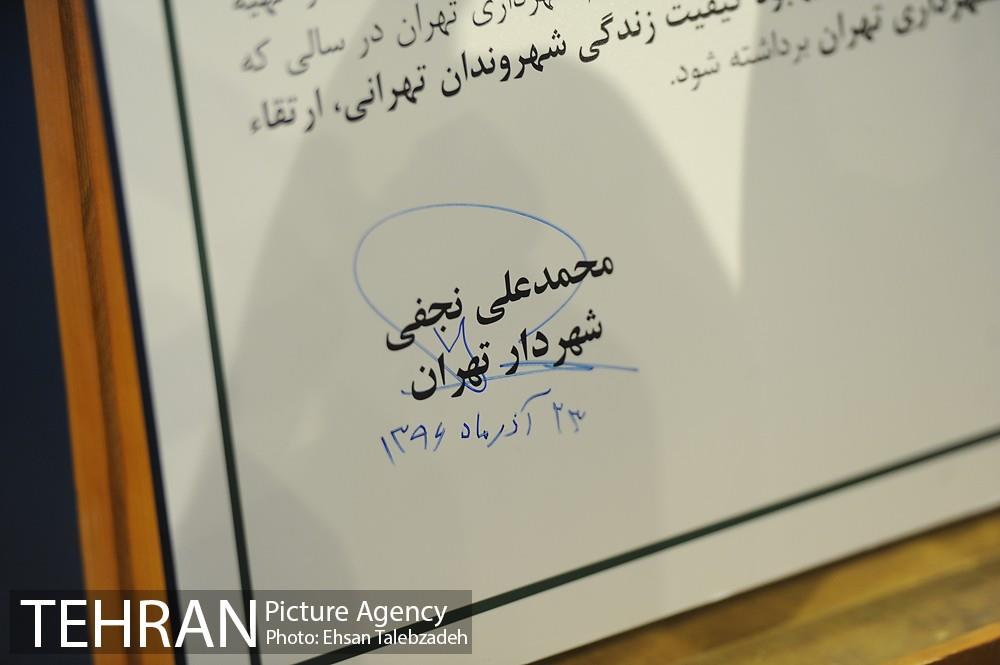 تهیه
شهرداری تهران در سالی که
کیفیت زندگی شهروندان تهرانی، ارتقاء
شهرداری تهران برداشته شود.
محمدعلی نجفی
شهردار تهران
۲۳ آذر ماه ۱۳۹۶
TEHRAN Picture Agency
Photo: Ehsan Talebzadeh